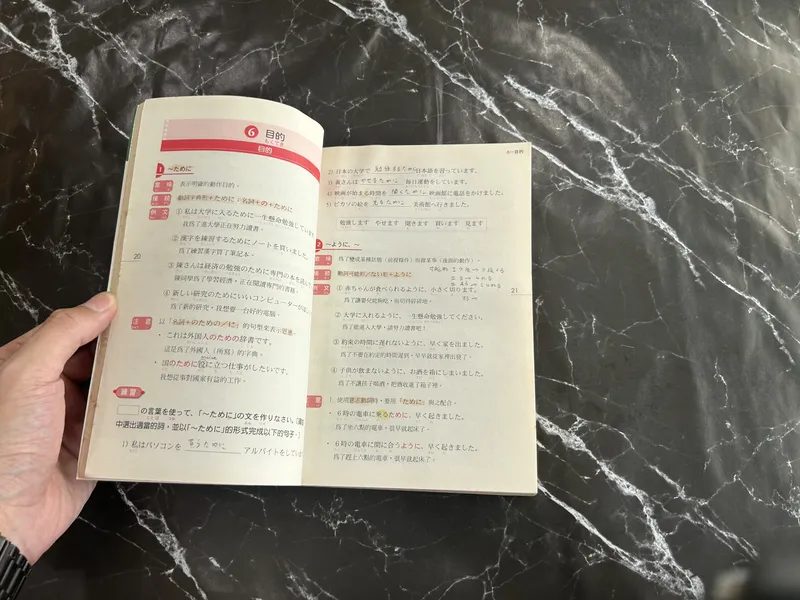 6 目的
もくてき
目的
1 ～ために
意味 表示明確的動作目的。
接続 動詞字典形+ために／名詞+の+ために
例文 ① 私は大学に入るために一生懸命勉強してい
我為了進大學正在努力讀書。
② 漢字を練習するためにノートを買いました。
我為了練習漢字買了筆記本。
③ 陳さんは経済の勉強のために専門の本を読ん
陳同學為了學習經濟，正在閱讀專門的書籍。
④ 新しい研究のためにいいコンピューターが
為了新的研究，我想要一台好的電腦。
20
注意 以「名詞+のための／に」的句型來表示恩惠。
・これは外国人のための辞書です。
這是為了外國人（所寫）的字典。
・国のために役に立つ仕事がしたいです。
我想從事對國家有益的工作。
練習
の言葉を使って、「～ために」の文を作りなさい。
中選出適當的詞，並以「～ために」的形式完成以下的句子。
1) 私はパソコンを 買うために アルバイトをしてい
6 目的
2) 日本の大学で 勉強するため 日本語を習っています。
3) 黃さんは やせるために 毎日運動をしています。
4) 映画が始まる時間を 聞くために 映画館に電話をかけました。
5) ピカソの絵を 見るために 美術館へ行きました。
勉強します やせます 聞きます 買います 見ます
2 ～ように、～
意味 為了變成某種狀態（前提條件）而做某事（後面的動作）。
接続 動詞可能形／ない形+ように
例文 ① 赤ちゃんが食べられるように、小さく切ります。
為了讓嬰兒能夠吃，而切得碎碎地。
② 大学に入れるように、一生懸命勉強してください。
為了能進入大學，請努力讀書吧！
③ 約束の時間に遅れないように、早く家を出ました。
為了不要在約定的時間遲到，早早就從家裡出發了。
④ 子供が飲まないように、お酒を箱にしまいました。
為了不讓孩子喝酒，把酒收進了箱子裡。
21
1. 使用意志動詞時，要用「ために」與之配合。
・6時の電車に乗るために、早く起きました。
為了坐六點的電車，很早就起床了。
・6時の電車に間に合うように、早く起きました。
為了趕上六點的電車，很早就起床了。